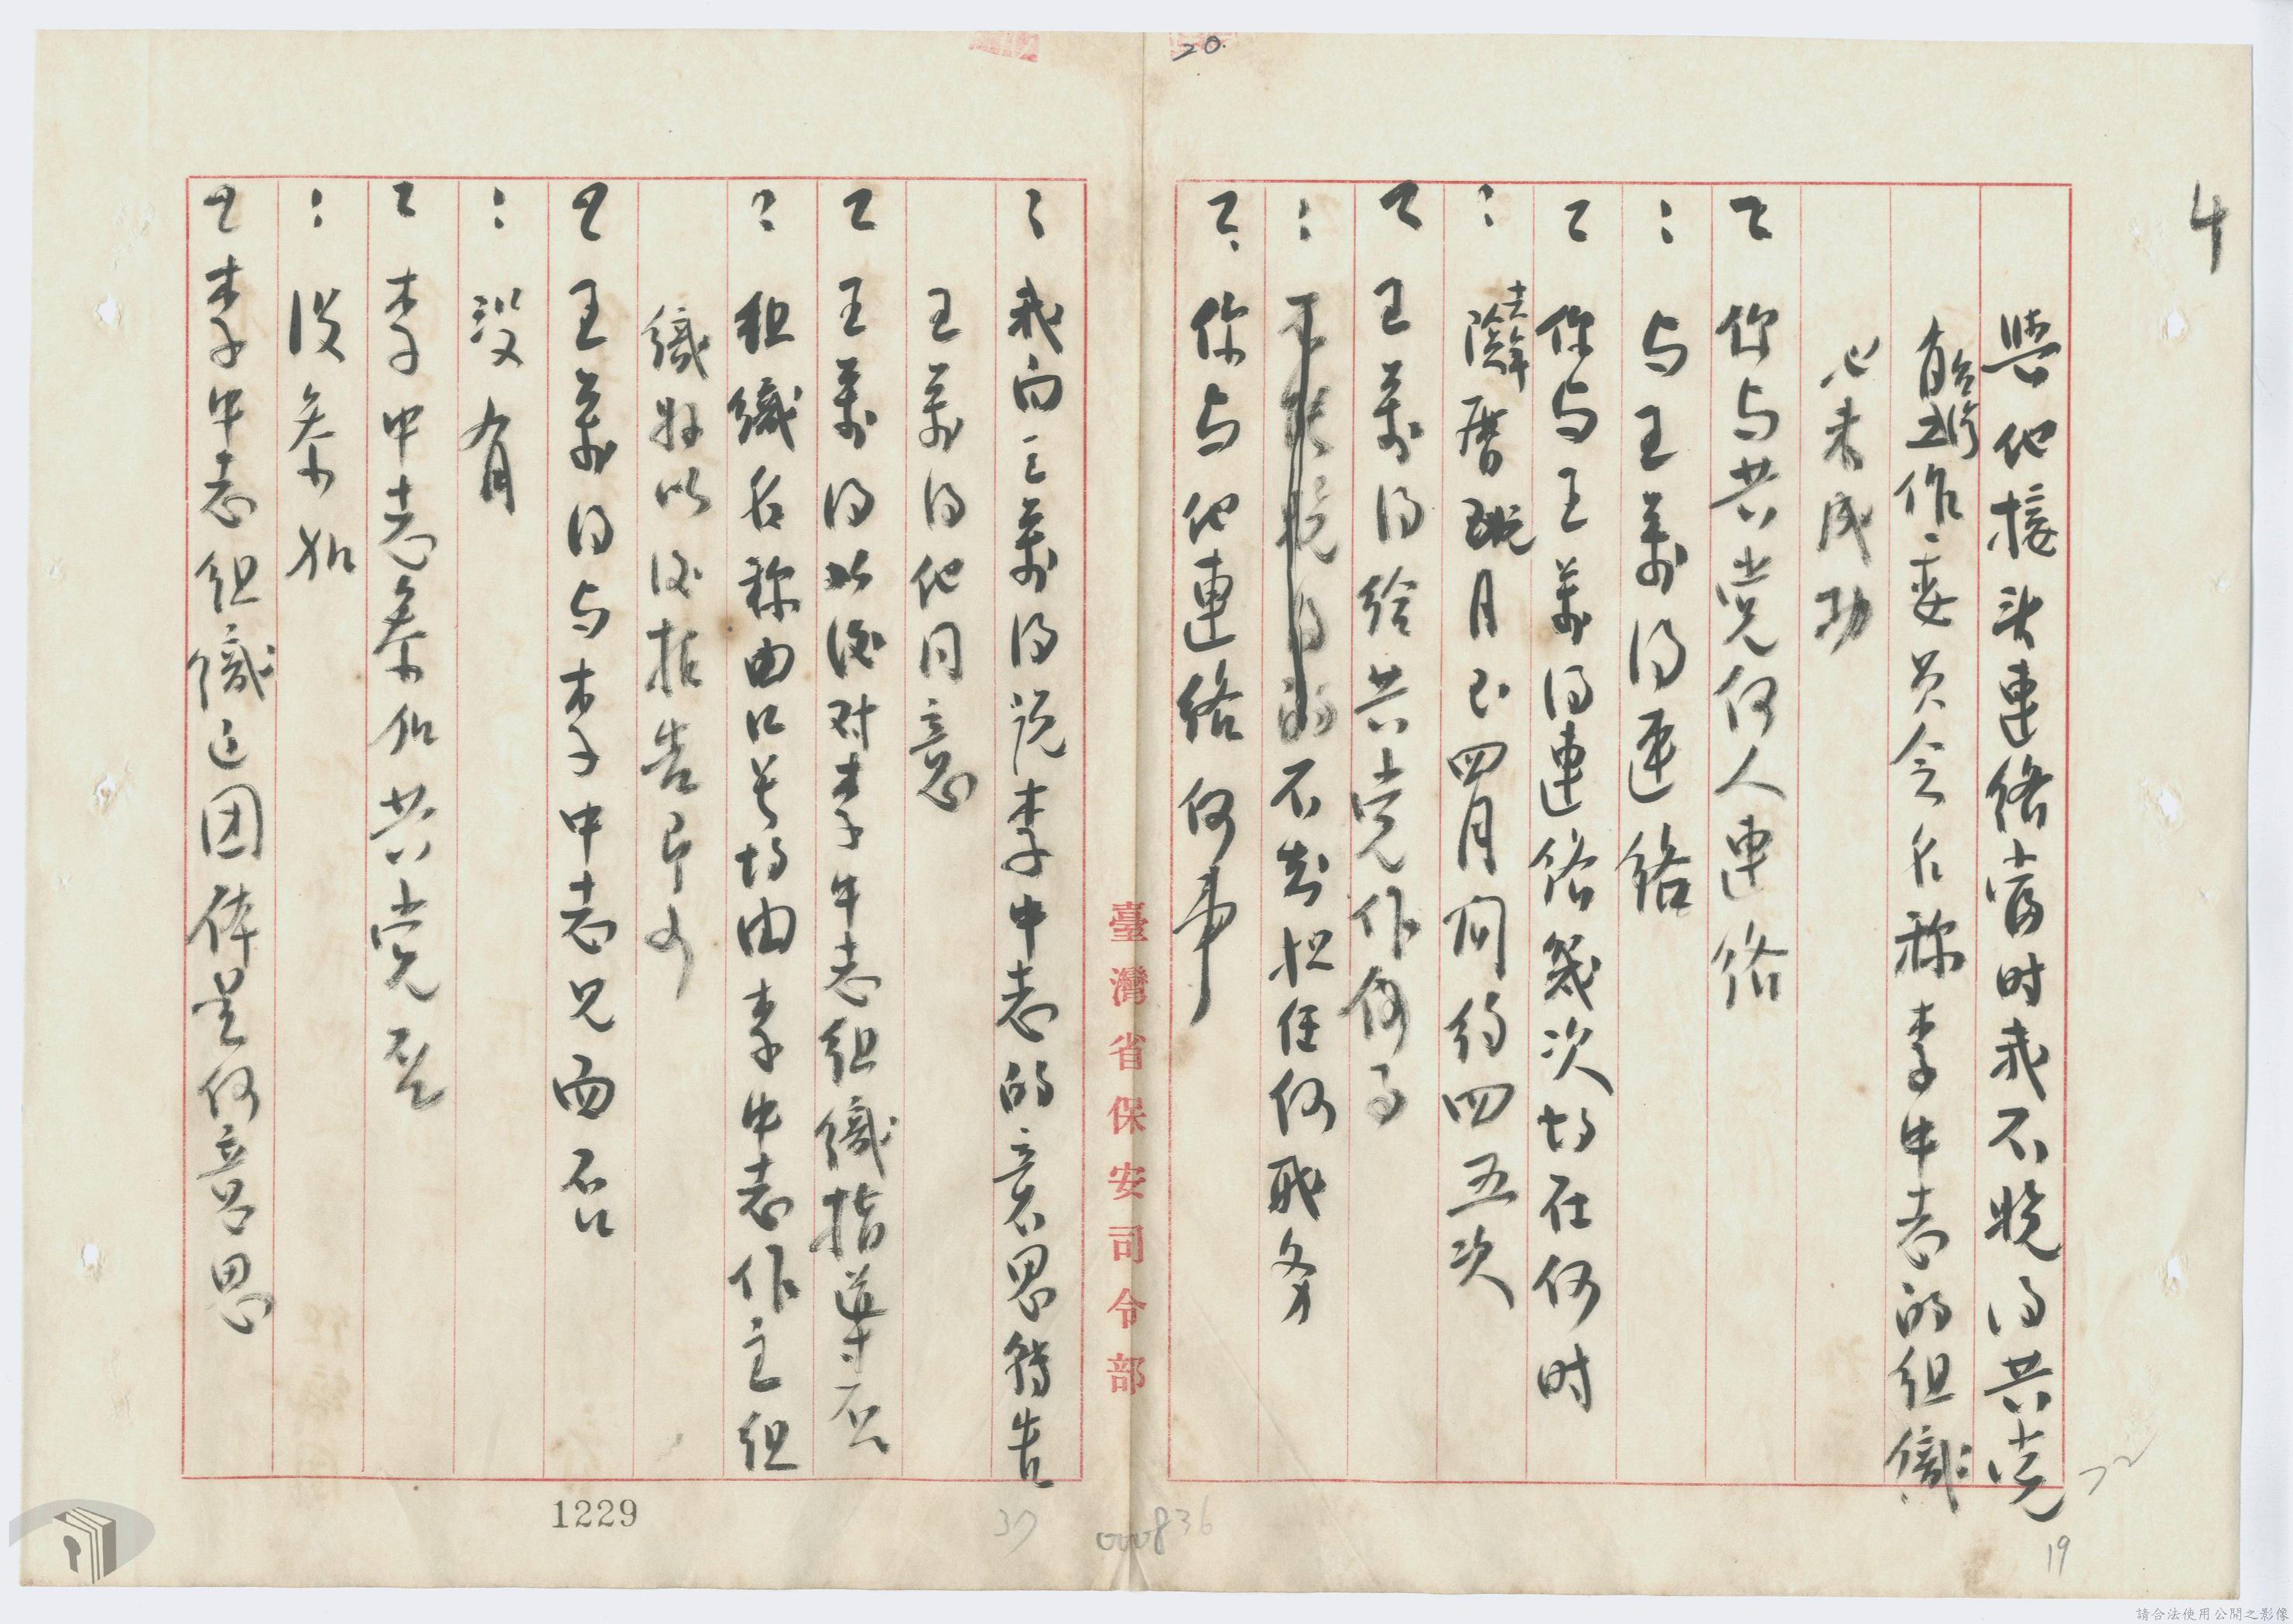 20.
4
與他接头連絡當时我不曉得共党
作委员会名称李中志的组織
也未成功
乙 你与共党何人連絡
：与王萬得連絡
乙 你与王萬得連絡幾次均在何时
：去年 陰曆 月至四月间约四五次
乙 王萬得给共党作何事
：不知担任何职务
乙 你与他連絡何事
：我向王萬得说李中志的意思转告
王萬得他同意
乙 王萬得以後对李中志组織指導否
：组織名称由口号均由李中志作主组
織好以後报告即可
乙 王萬得与李中志见面否
：没有
乙 李中志参加共党否
：没参加
乙 李中志组織这团体是何意思
臺灣省保安司令部
1229
37
000836
72
19
請合法使用公開之影像